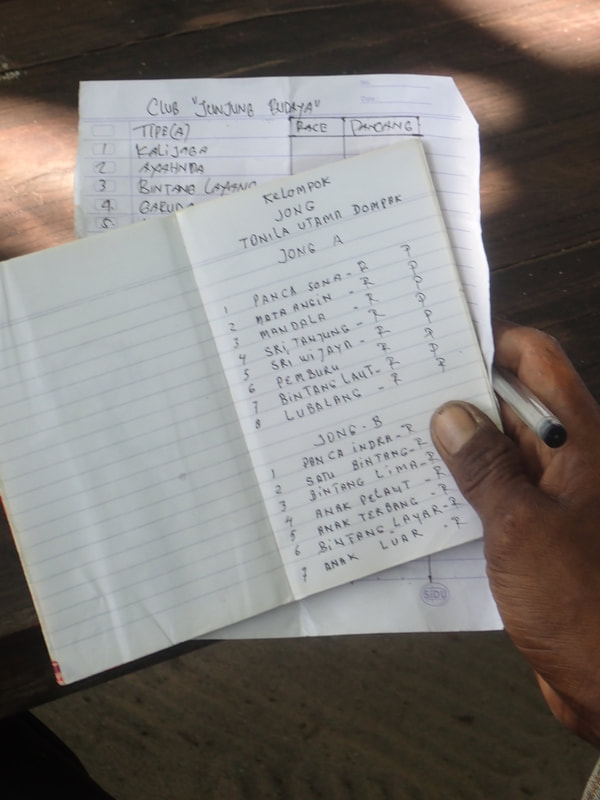 No:
Date:
CLUB "JUNJUNG BUDAYA"
TIPE(A) RACE DANCANG
1 KALIJAGA
2 AYAHNDA
3 BINTANG LAYANG
4. GARUDA
5.
KELOMPOK
JONG
TONILA UTAMA DOMPAK
JONG A
1 PANCA SONA - R P
2 MATA ANGIN - R P
3 MANDALA - R P
4 SRI TANJUNG - R P
5 SRI WIJAYA - R P
6 PEMBURU - R P
7 BINTANG LAUT - R P
8 LUBALANG - R
JONG - B
1 PANCA INDRA - R
2 SATU BINTANG - R
3 BINTANG LIMA - R
4 ANAK PELAUT - R
5 ANAK TERBANG - R
6 BINTANG LAYAR - R
7 ANAK LUAR - R
SIDU